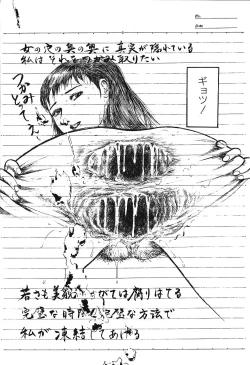 女の穴の奥の奥に真実が隠れている
私はそれをつかみ取りたい
つかみとってえ
ギョッ!
若さも美貌もやがては腐りはてる
完璧な時間を完璧な方法で
私が凍結してあげる